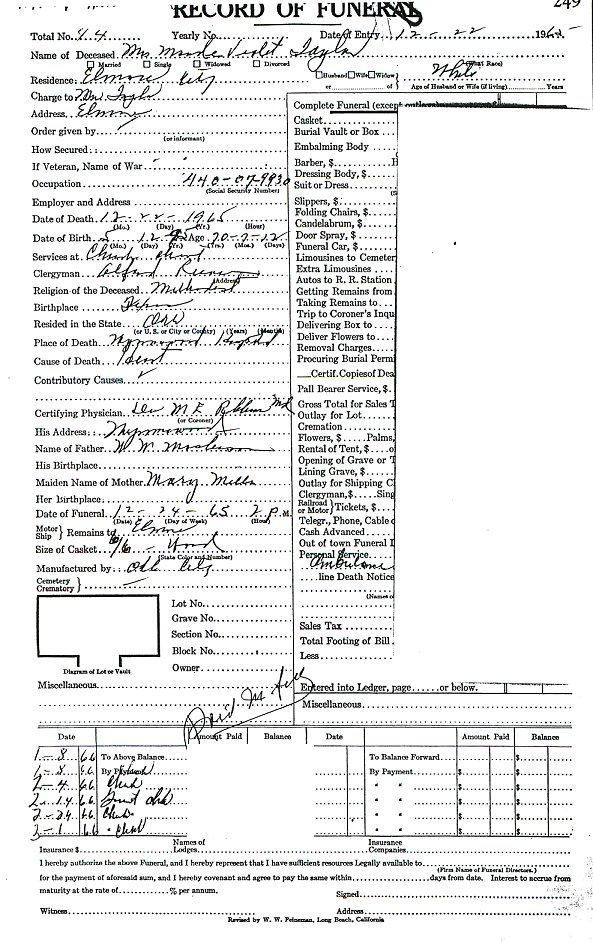 RECORD OF FUNERAL
249
Total No. 84 Yearly No. Date of Entry 12-22 1965
Name of Deceased Mrs. Violet Taylor
Married Single Widowed Divorced
(What Race)
Residence: Elmore City Husband Wife Widow White
or of Age of Husband or Wife (if living) Years
Charge to
Address Elmore
Order given by
(or informant)
How Secured:
If Veteran, Name of War
Occupation 440-07-9930
(Social Security Number)
Employer and Address
Date of Death 12-22-1965
(Mo.) (Day) (Yr.) (Hour)
Date of Birth 5 12 Age 70-7-12
(Mo.) (Day) (Yr.) (Yrs.) (Mos.) (Days)
Services at Church
Clergyman Alfred
(Address)
Religion of the Deceased Methodist
Birthplace
Resided in the State
(or U. S. or City or County) (Years) (Months)
Place of Death Wynnewood Hospital
Cause of Death
Contributory Causes
Certifying Physician Dr M E MD
(or Coroner)
His Address:
Name of Father W. W.
His Birthplace
Maiden Name of Mother Mary Mills
Her Birthplace
Date of Funeral 12-24-65 2 P.M.
(Date) (Day of Week) (Hour)
Motor Ship } Remains to Elmore
Size of Casket 6/6
(State Color and Number)
Manufactured by: City
Cemetery Crematory }
Lot No.
Grave No.
Section No.
Block No.
Owner
Diagram of Lot or Vault
Miscellaneous
Complete Funeral (except
Casket
Burial Vault or Box
Embalming Body
Barber, $
Dressing Body, $
Suit or Dress
Slippers, $
Folding Chairs, $
Candelabrum, $
Door Spray, $
Funeral Car, $
Limousines to Cemeter
Extra Limousines
Autos to R. R. Station
Getting Remains from
Taking Remains to
Trip to Coroner's Inqu
Delivering Box to
Deliver Flowers to
Removal Charges
Procuring Burial Permi
Certif. Copies of Dea
Pall Bearer Service, $
Gross Total for Sales T
Outlay for Lot
Cremation
Flowers, $ Palms,
Rental of Tent, $ o
Opening of Grave or T
Lining Grave, $
Outlay for Shipping C
Clergyman, $ Sing
Railroad or Motor } Tickets, $
Telegr., Phone, Cable c
Cash Advanced
Out of town Funeral I
Personal Service
Ambulance
line Death Notice
(Names o
Sales Tax
Total Footing of Bill
Less
Entered into Ledger, page or below.
Miscellaneous
Paid in full
Date Amount Paid Balance Date Amount Paid Balance
1-8 66 To Above Balance To Balance Forward $ $
1-8 66 By Payment By Payment $ $
2-4 66 Check " " $ $
2-14 66 " " $ $
2-24 66 Check " " $ $
3-1 66 Check " " $ $
Insurance $ Names of Lodges Insurance Companies
I hereby authorize the above Funeral, and I hereby represent that I have sufficient resources Legally available to
(Firm Name of Funeral Directors.)
for the payment of aforesaid sum, and I hereby covenant and agree to pay the same within days from date. Interest to accrue from
maturity at the rate of % per annum. Signed
Witness Address
Revised by W. W. Feineman, Long Beach, California